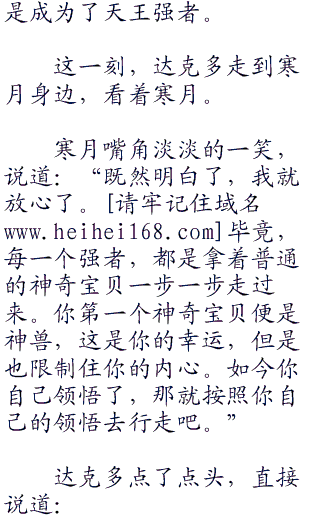 是成为了天王强者。
这一刻，达克多走到寒
月身边，看着寒月。
寒月嘴角淡淡的一笑，
说道：“既然明白了，我就
放心了。[请牢记住域名
www.heihei168.com]毕竟，
每一个强者，都是拿着普通
的神奇宝贝一步一步走过
来。你第一个神奇宝贝便是
神兽，这是你的幸运，但是
也限制住你的内心。如今你
自己领悟了，那就按照你自
己的领悟去行走吧。”
达克多点了点头，直接
说道：